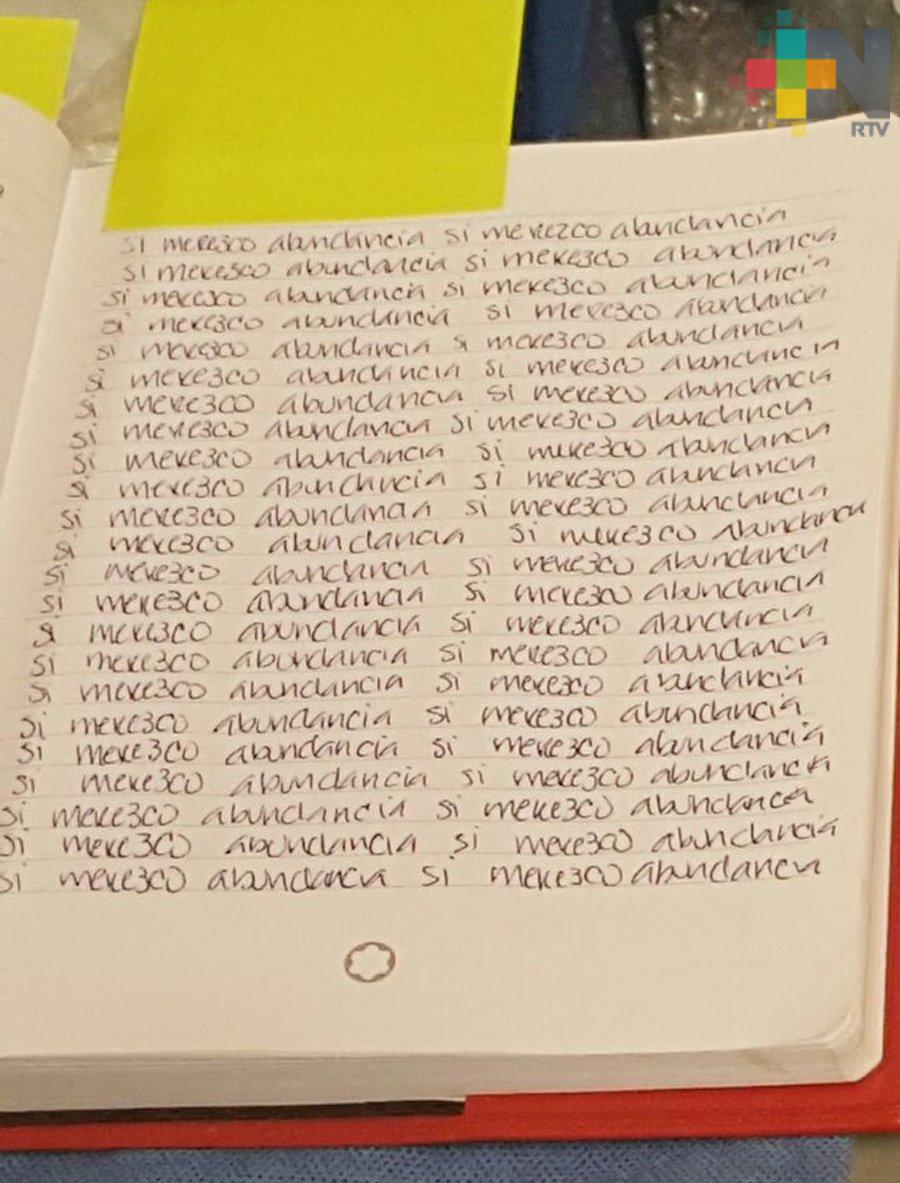 N
RTV
si meresco abundancia si merezco abundancia
si meresco abundancia si merezco abundancia
si merezco abundancia si merezco abundancia
si merezco abundancia si merezco abundancia
si merezco abundancia si merezco abundancia
si merezco abundancia si merezco abundancia
si merezco abundancia si merezco abundancia
si merezco abundancia si merezco abundancia
si merezco abundancia si merezco abundancia
si merezco abundancia si merezco abundancia
si merezco abundancia si merezco abundancia
si merezco abundancia si merezco abundancia
si merezco abundancia si merezco abundancia
si merezco abundancia si merezco abundancia
si merezco abundancia si merezco abundancia
si merezco abundancia si merezco abundancia
si merezco abundancia si merezco abundancia
si merezco abundancia si merezco abundancia
si merezco abundancia si merezco abundancia
si merezco abundancia si merezco abundancia
si merezco abundancia si merezco abundancia
si merezco abundancia si merezco abundancia
si merezco abundancia si merezco abundancia